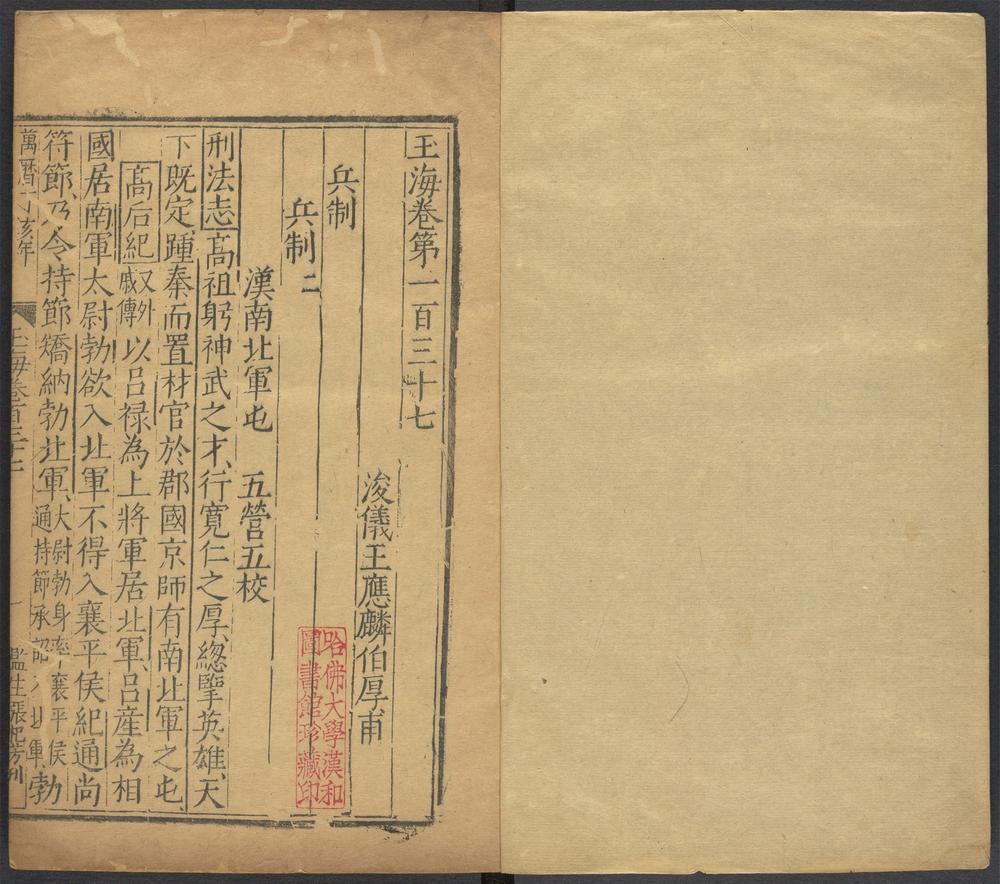 玉海卷第一百三十七
浚儀王應麟伯厚甫
兵制
兵制二
漢南北軍屯　五營五校
刑法志高祖躬神武之才行寬仁之厚緫擥英雄天
下既定踵秦而置材官於郡國京師有南北軍之屯
高后紀又外戚傳以吕禄為上將軍居北軍吕產為相
國居南軍太尉勃欲入北軍不得入襄平侯紀通尚
符節乃令持節矯納勃北軍大尉勃身率襄平侯通持節承詔入北軍勃
萬曆丁亥年
玉海卷百三十七
一
監生張
刊
哈佛大學漢和
圖書館珍藏印